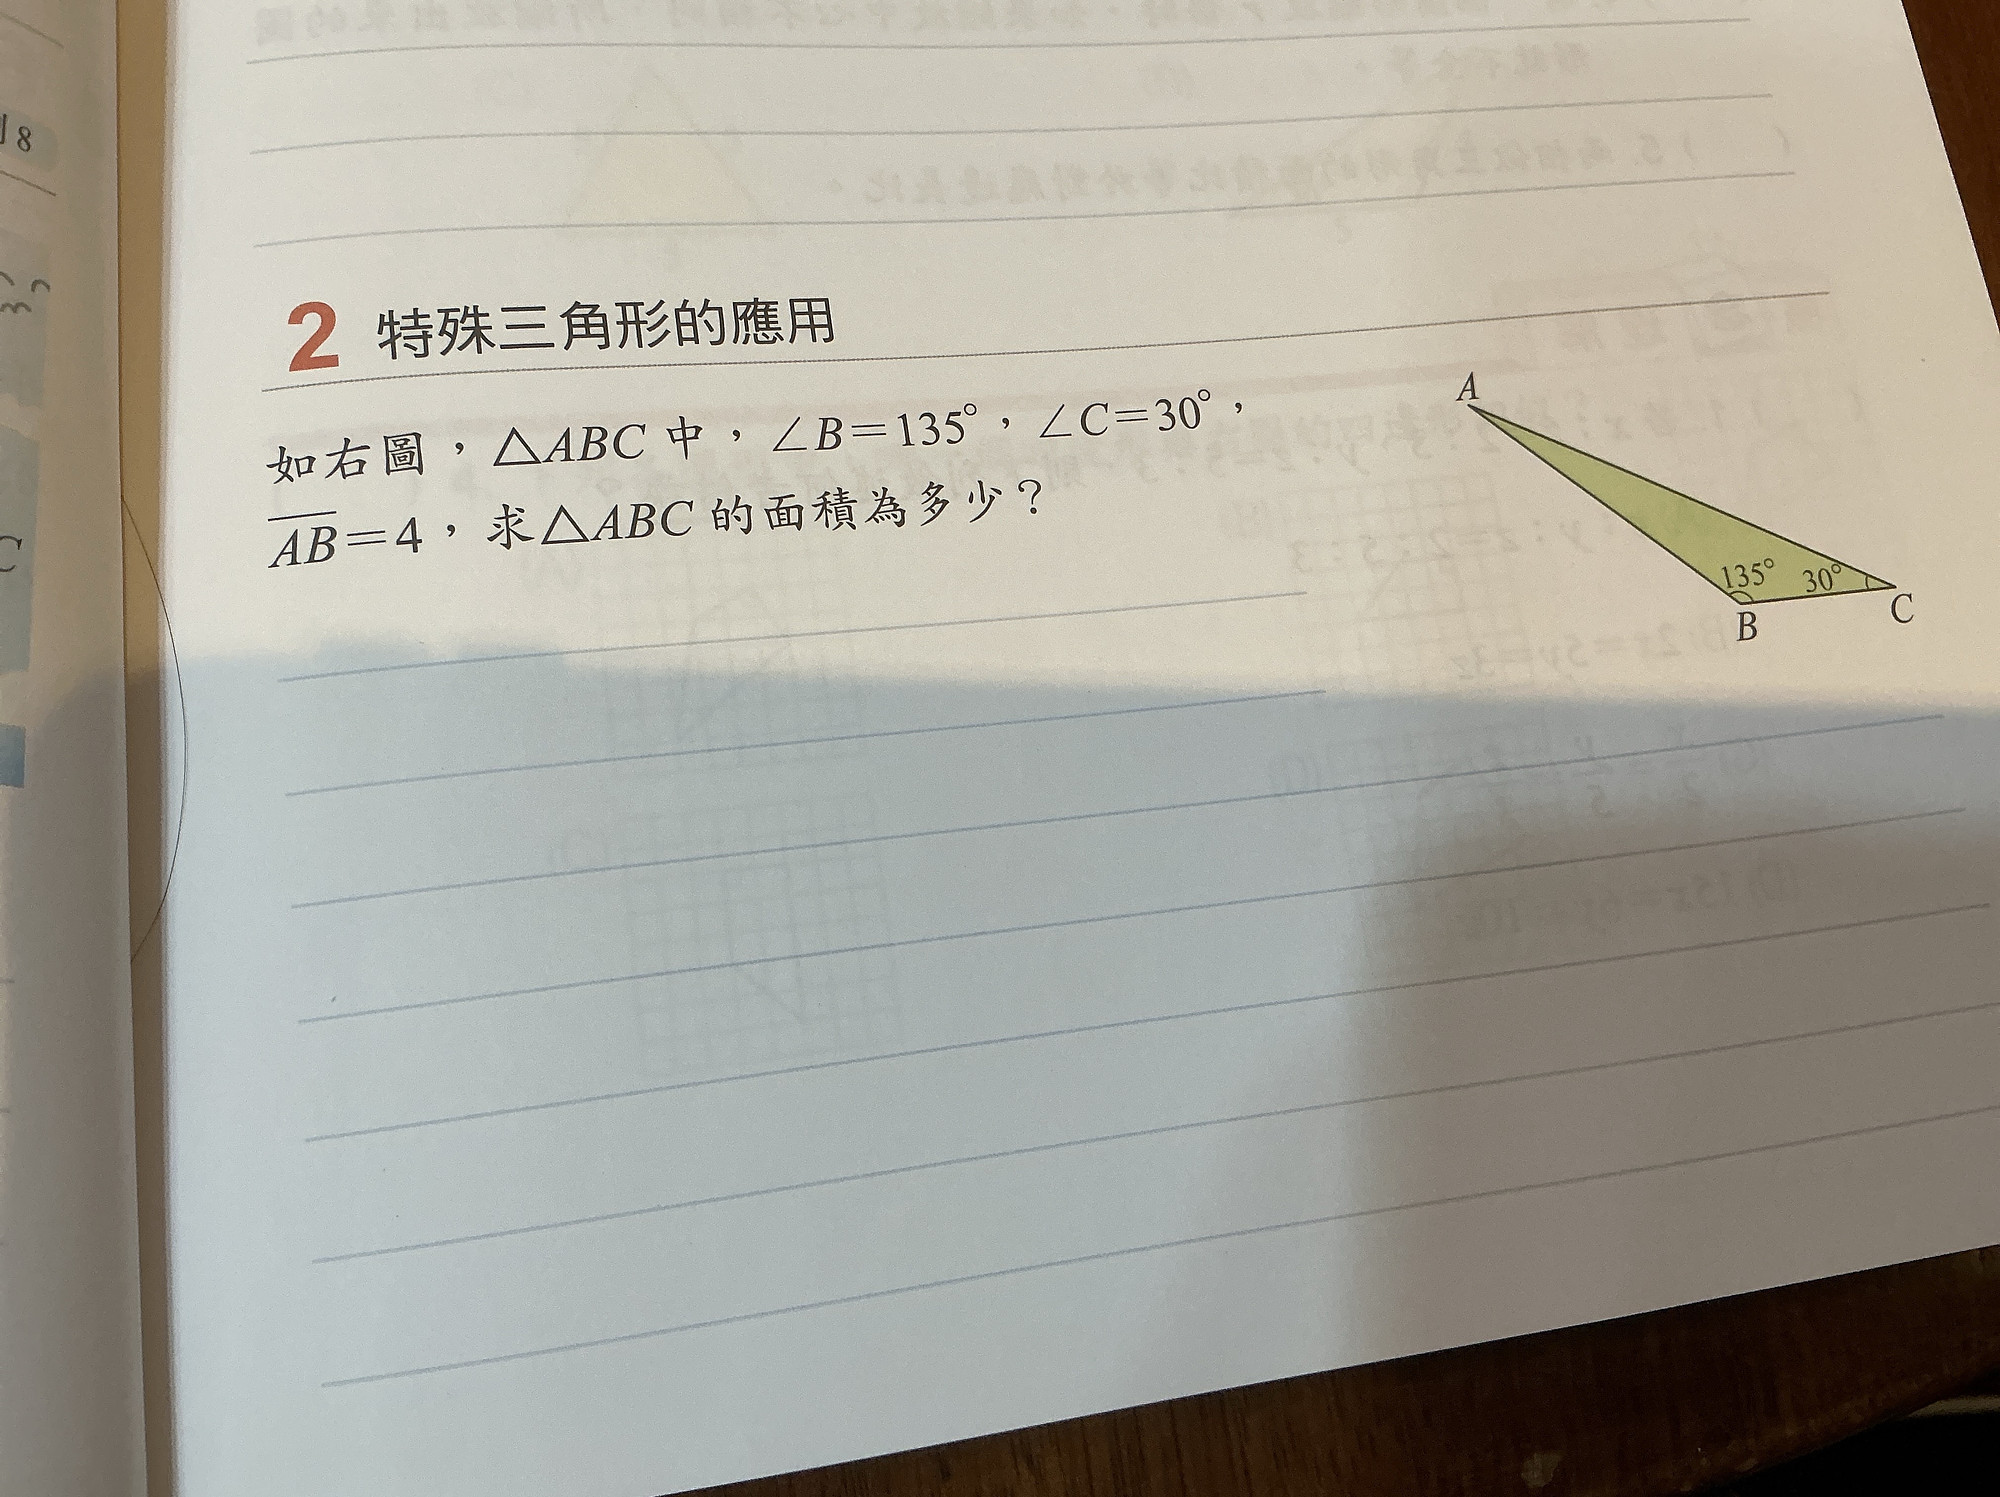 8
C
2 特殊三角形的應用
如右圖,△ABC 中,∠B=135°,∠C=30°,
AB=4,求△ABC 的面積為多少?
A
135° 30°
B
C